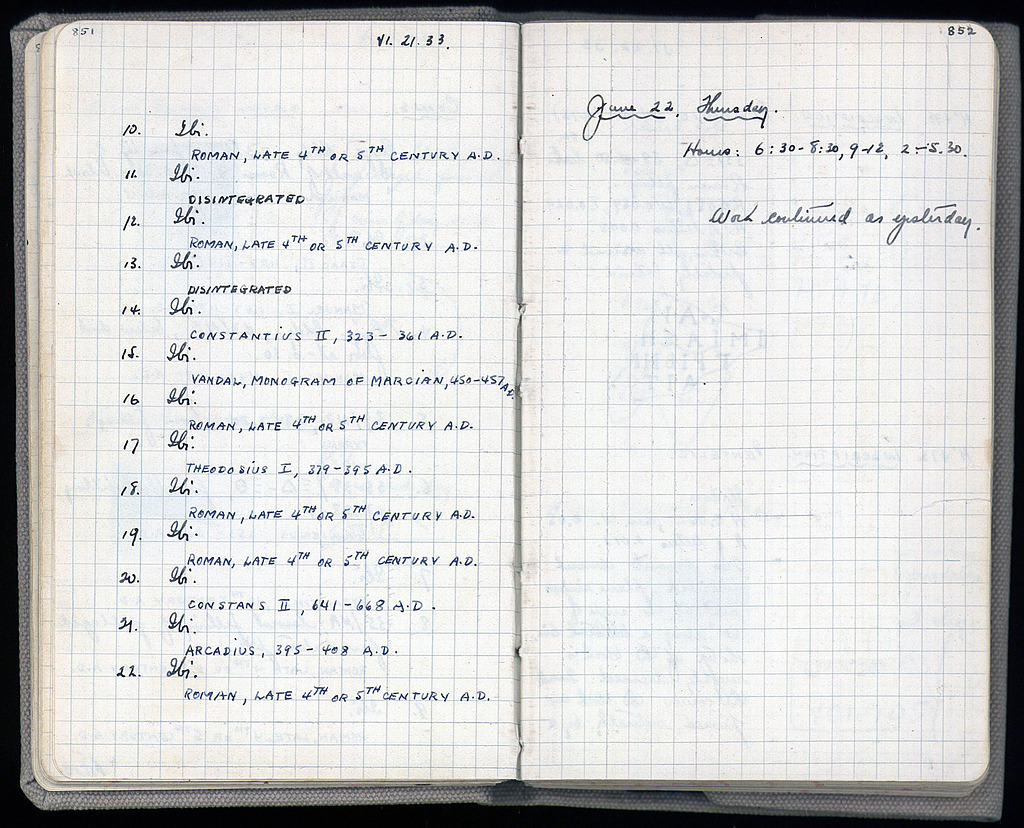 851
VI. 21. 33.
10. Ibi.
ROMAN, LATE 4TH OR 5TH CENTURY A.D.
11. Ibi.
DISINTEGRATED
12. Ibi.
ROMAN, LATE 4TH OR 5TH CENTURY A.D.
13. Ibi.
DISINTEGRATED
14. Ibi.
CONSTANTIUS II, 323 - 361 A.D.
15. Ibi.
VANDAL, MONOGRAM OF MARCIAN, 450-457 A.D.
16 Ibi.
ROMAN, LATE 4TH OR 5TH CENTURY A.D.
17 Ibi.
THEODOSIUS I, 379-395 A.D.
18. Ibi.
ROMAN, LATE 4TH OR 5TH CENTURY A.D.
19. Ibi.
ROMAN, LATE 4TH OR 5TH CENTURY A.D.
20. Ibi.
CONSTANS II, 641-668 A.D.
21. Ibi.
ARCADIUS, 395 - 408 A.D.
22. Ibi.
ROMAN, LATE 4TH OR 5TH CENTURY A.D.
852
June 22, Thursday.
Hours: 6:30-8:30, 9-12, 2-5.30.
Work continued as yesterday.